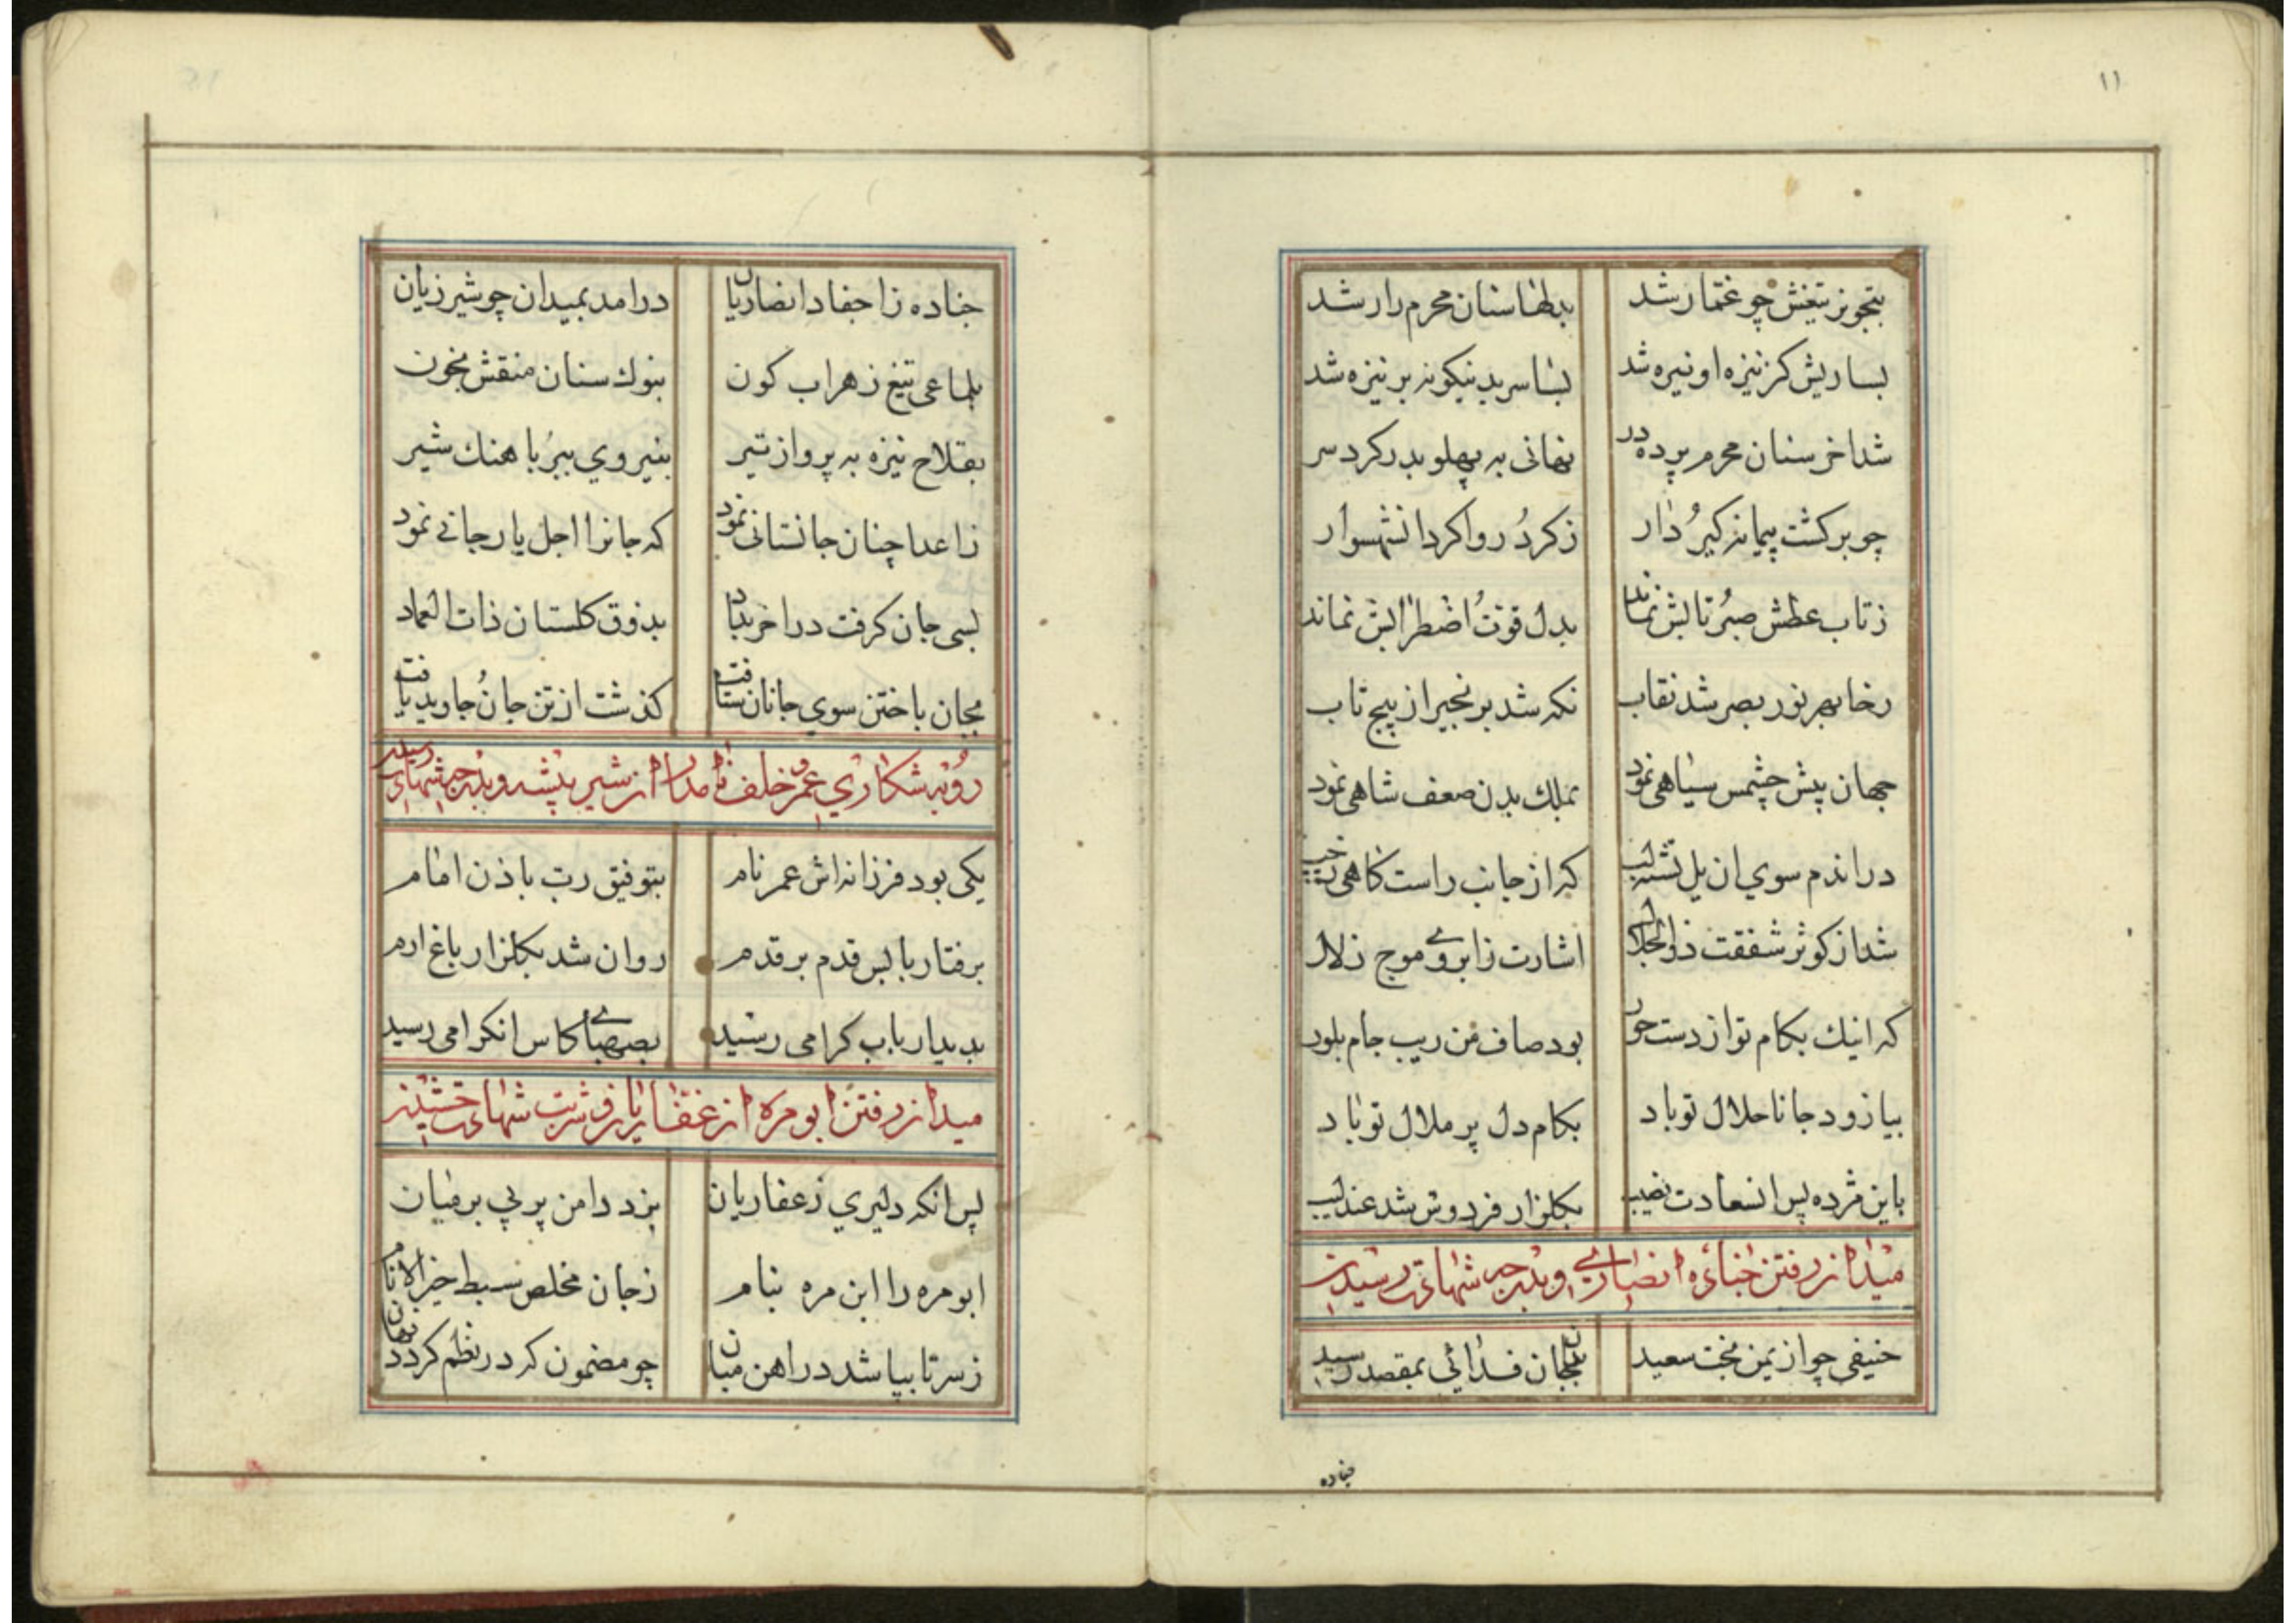 ۱۱
بتجویز تیغش چو غمار شد بدلها سنان محرم راز شد
بسا ریش کز نیزه او نیره شد بسا سر بدینکونه بر نیزه شد
شد اخر سنان محرم پرده در نهانی به پهلو بدر کرد سر
چو برکشت پیمانه کیرُ دار ز کردُ روا کرد انشهسوار
ز تاب عطش صبرُ تابش نماند بدل قوتُ اضطرابش نماند
رخا بهر نور بصر شد نقاب نکه شد بزنجیر از پیچ تاب
جهان پیش چشمس سیاهی نمود بملك بدن ضعف شاهی نمود
در اندم سوی ان یل تشنه لب که از جانب راست کاهی ز چپ
شد از کوثر شفقت ذوالجلال اشارت ز ابروی موج زلال
که اینك بکام تو از دست حور بود صاف من ریب جام بلور
بیا زود جانا حلال تو باد بکام دل پر ملال تو باد
باین مژده پس انسعادت نصیب بکلزار فردوس شد عندلیب
میدان رفتن جناده انصاری و بدرجه شهادت رسیدن
حنیفی چو از یمن بخت سعید بجان فدائی بمقصد رسید
جناده
جناده ز احفاد انصاریان درامد بمیدان چو شیر زیان
بلماعی تیغ زهراب کون بنوك سنان منقش بخون
بقلاح نیزه به پرواز تیر بنیروی ببرُ باهنك شیر
ز اعدا چنان جانستانی نمود که جانرا اجل یار جانی نمود
بسی جان کرفت در اخر بداد بذوق کلستان ذات العماد
بجان باختن سوی جانان شتافت کذشت از تن جانُ جاوید یافت
رو به شکاری عمر خلف نامدار از شیر بیشه و بدرجه شهادت رسیدن
یکی بود فرزانه اش عمر نام بتوفیق رب باذن امام
برفتار بابس قدم بر قدم روان شد بکلزار باغ ارم
بدیدار باب کرامی رسید بصهبای کاس انکرامی رسید
میدان رفتن ابو مره از غفاریان و شربت شهادت چشیدن
پس انکه دلیری ز غفاریان بزد دامن پر پی بر میان
ابو مره را ابن مره بنام ز جان مخلص سبط خیر الانام
ز سر تا بپا شد در اهن میان چو مضمون که در نظم کردد نهان